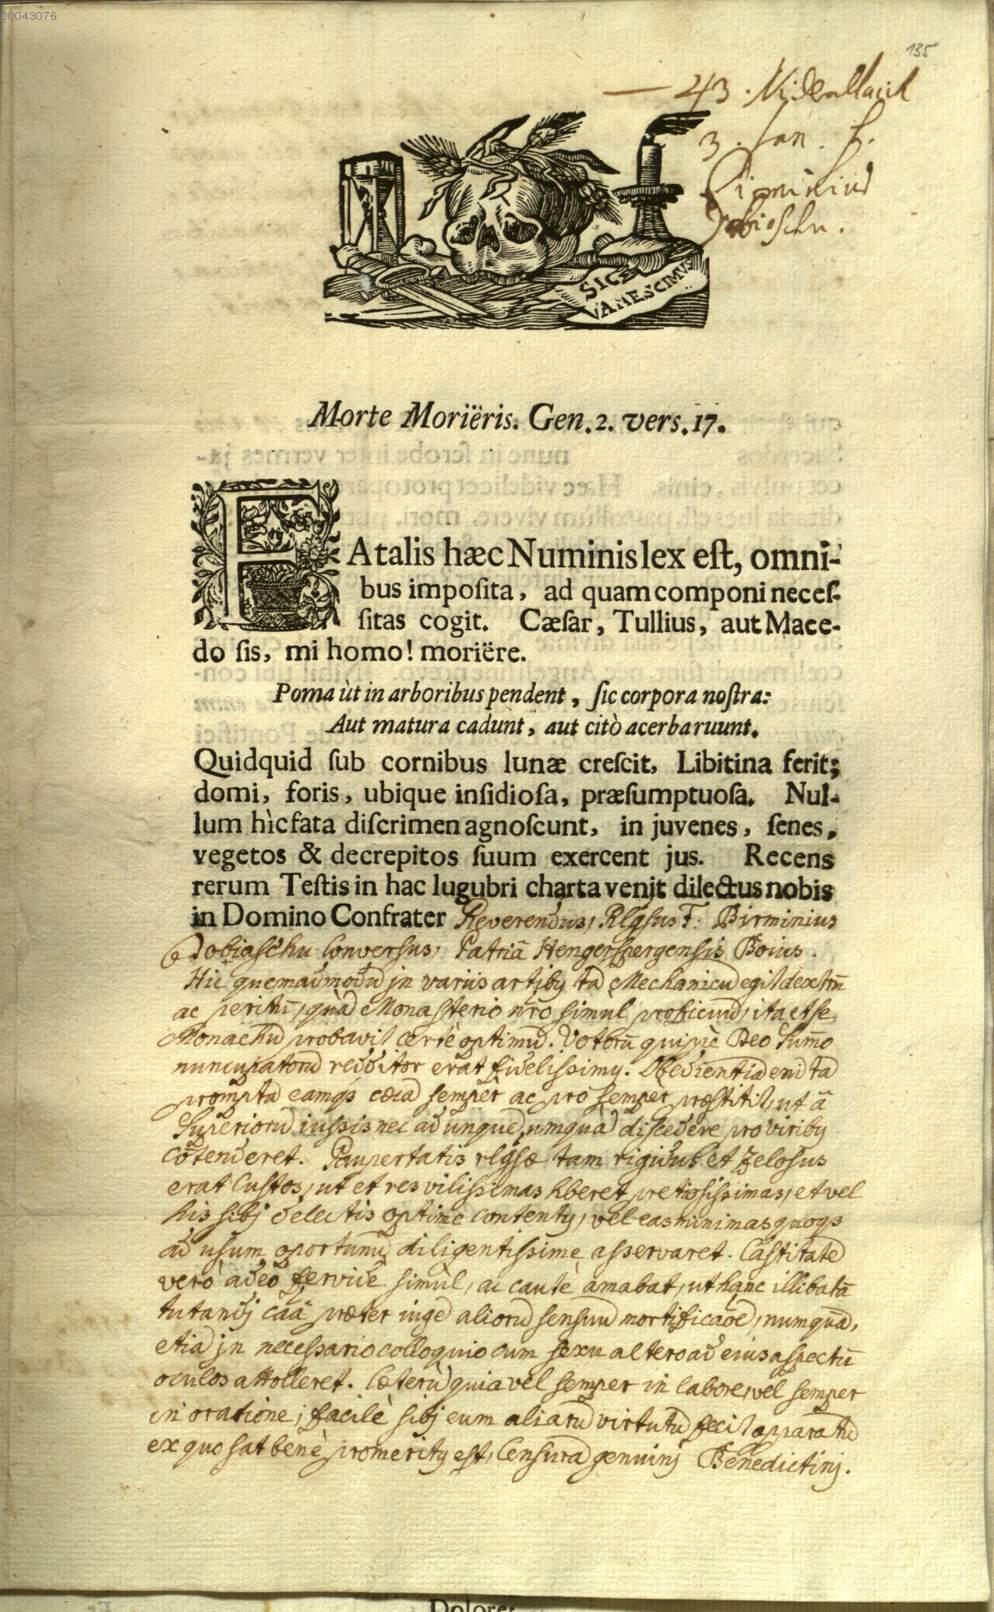 00043076
135
— 43. Niderallaich
3. Jan. F.
Pirminius
SIC EVANESCIMVS
Morte Moriëris. Gen.2. vers.17.
FAtalis hæc Numinis lex eſt, omni-
bus impoſita, ad quam componi neceſ-
ſitas cogit. Cæſar, Tullius, aut Mace-
do ſis, mi homo! moriëre.
Poma ùt in arboribus pendent, ſic corpora noſtra:
Aut matura cadunt, aut citò acerba ruunt.
Quidquid ſub cornibus lunæ creſcit, Libitina ferit;
domi, foris, ubique inſidioſa, præſumptuoſa. Nul-
lum hìc fata diſcrimen agnoſcunt, in juvenes, ſenes,
vegetos & decrepitos ſuum exercent jus. Recens
rerum Teſtis in hac lugubri charta venit dilectus nobis
in Domino Confrater Reverendus, Rlgsus F. Pirminius
Conversus, Patriâ Hengerspergensis Boius.
Hic quemadmodũ in variis artibq tã Mechanicũ egit dextrũ
ac peritũ, quã Monasterio nr̃o simul proficuũ, ita et se
Monachũ probavit certè optimũ. Votorũ quippè Deo Sum̃o
nuncupatorũ redditor erat fidelissimq. Obedientiã eni͂ tã
promptã eamqs cæcã semper ac pro semper præstitit, ut â
Superiorũ iussis nec ad unguẽ umquã discedere pro viribq
cõtenderet. Paupertatis rlgsæ tam rigidus et zelosus
erat Custos, ut et res vilissimas hberet pretiosissimas, et vel
his sibj delectis optimè contentq, vel eas minimas quoqs
ad usum oportunũ diligentissime asservaret. Castitatẽ
verò adeò fervidè simùl, ac cautè amabat, ut hanc illibatã
tutandj caâ præter ingẽ aliorũ sensuũ mortificaõẽ, numquã,
etiã in necessario colloquio cum sexu altero ad eius aspectũ
oculos attolleret. Cæterũ quia vel semper in labore, vel semper
in oratione, facilè sibj eum aliarũ virtutũ fecit apparatũ
ex quo sat benè promeritq est, Censurã genuinj Benedictinj.
Dolore: